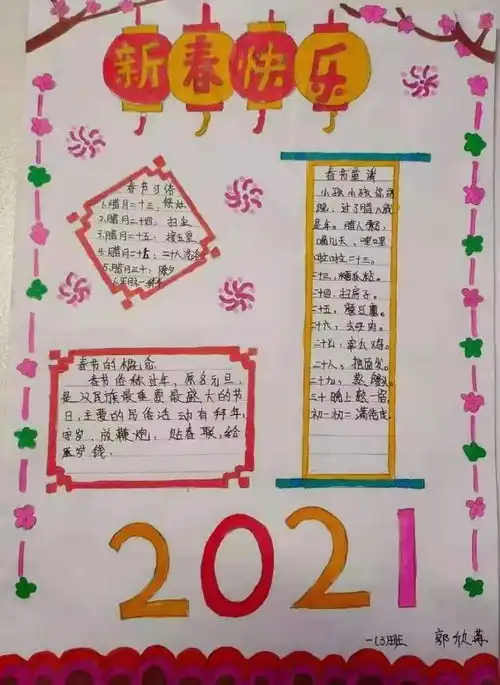 新春快乐
春节习俗
1.腊月二十三：
2.腊月二十四：扫尘
3.腊月二十五：接玉皇
5.腊月三十：除夕
春节的概念
春节俗称过年，原名元旦，
是汉民族最重要最盛大的节
日，主要的民俗活动有拜年，
守岁、放鞭炮，贴春联，给
压岁钱.
春节童谣
小孩小孩你别
馋，过了腊八就
是年。腊八粥，
喝几天，哩哩
啦啦二十三。
二十三，糖瓜粘。
二十四，扫房子。
二十五，磨豆腐。
二十六，去买肉。
二十七，宰公鸡。
二十八，把面发。
二十九，蒸馒头。
三十晚上熬一宿，
初一初二满街走
2021
一(3)班
郭欣